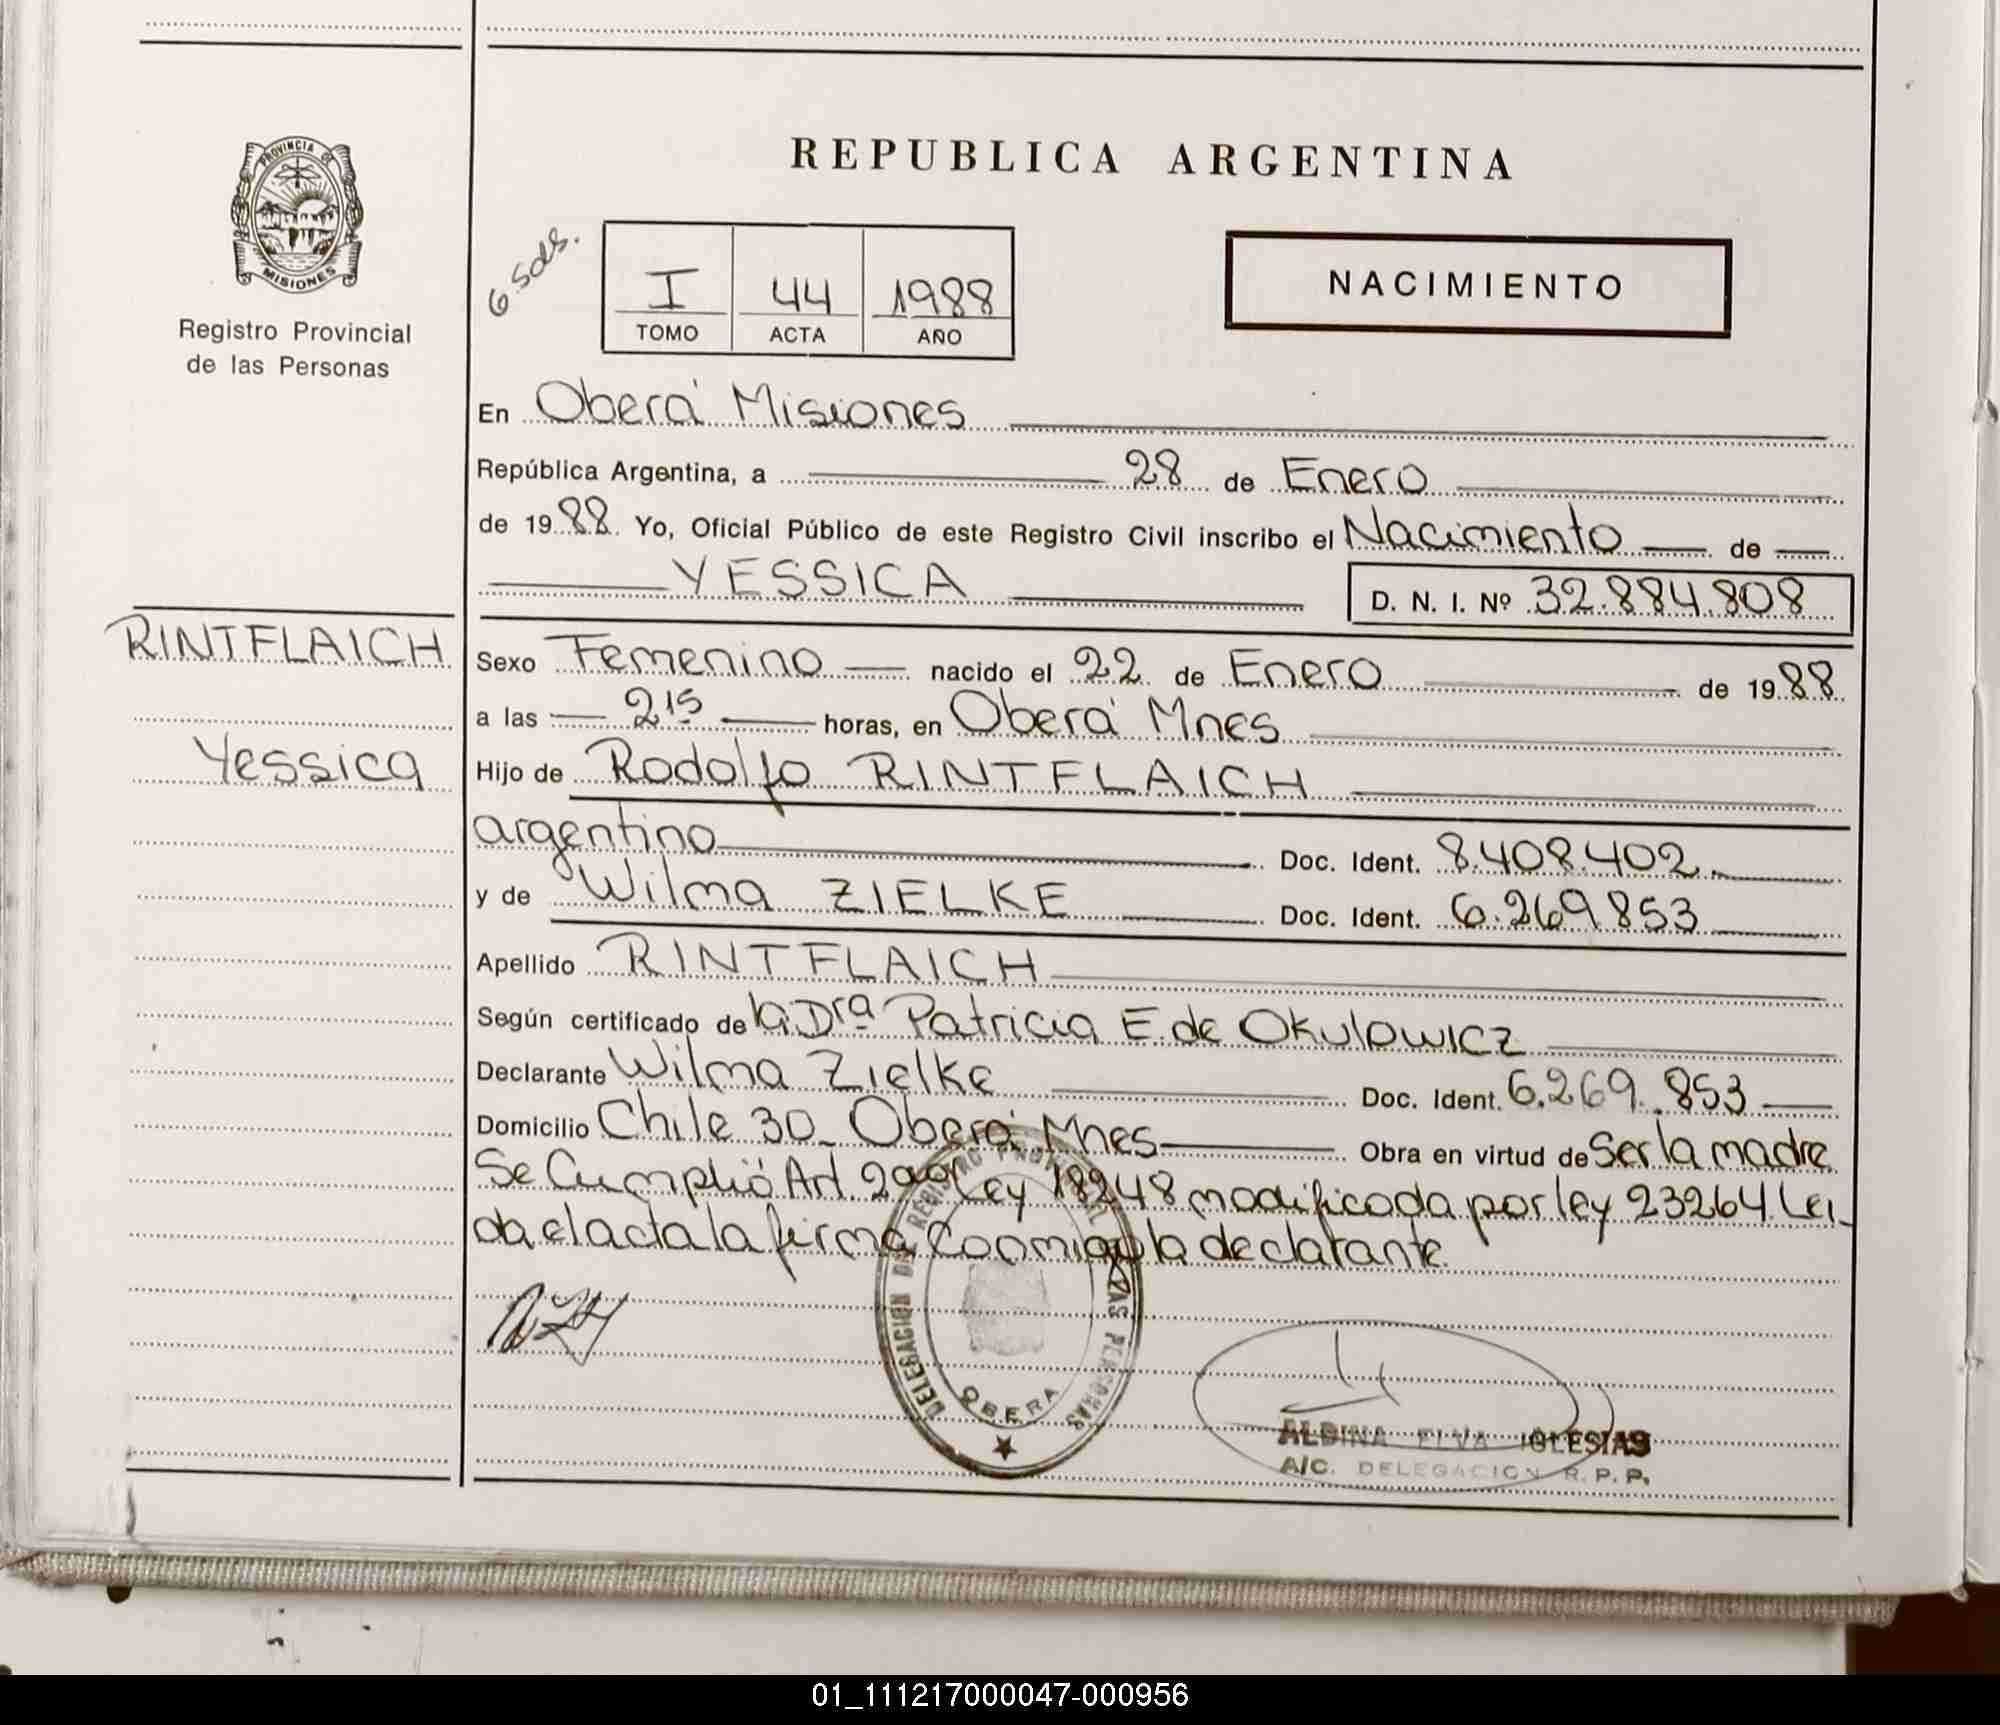 REPUBLICA ARGENTINA
PROVINCIA DE
MISIONES
Registro Provincial
de las Personas
6 Sds.
I 44 1988
TOMO ACTA AÑO
NACIMIENTO
En Oberá Misiones
República Argentina, a 28 de Enero
de 1988 Yo, Oficial Público de este Registro Civil inscribo el Nacimiento de
YESSICA D. N. I. Nº 32.884.808
RINTFLAICH
Yessica
Sexo Femenino nacido el 22 de Enero de 1988
a las 2 15 horas, en Oberá Mnes
Hijo de Rodolfo RINTFLAICH
argentino Doc. Ident. 8.408.402
y de Wilma ZIELKE Doc. Ident. 6.269.853
Apellido RINTFLAICH
Según certificado de la Dra Patricia E. de Okulowicz
Declarante Wilma Zielke Doc. Ident. 6.269.853
Domicilio Chile 30 Oberá Mnes Obra en virtud de Ser la madre
Se Cumplió Art. Ley 18248 modificada por ley 23264 Lei-
da el acta la firma Conmigo la declarante.
DELEGACION DEL REGISTRO PROVINCIAL DE LAS PERSONAS
OBERA
ALDINA ELVA IGLESIAS
A/C. DELEGACION R. P. P.
01_111217000047-000956